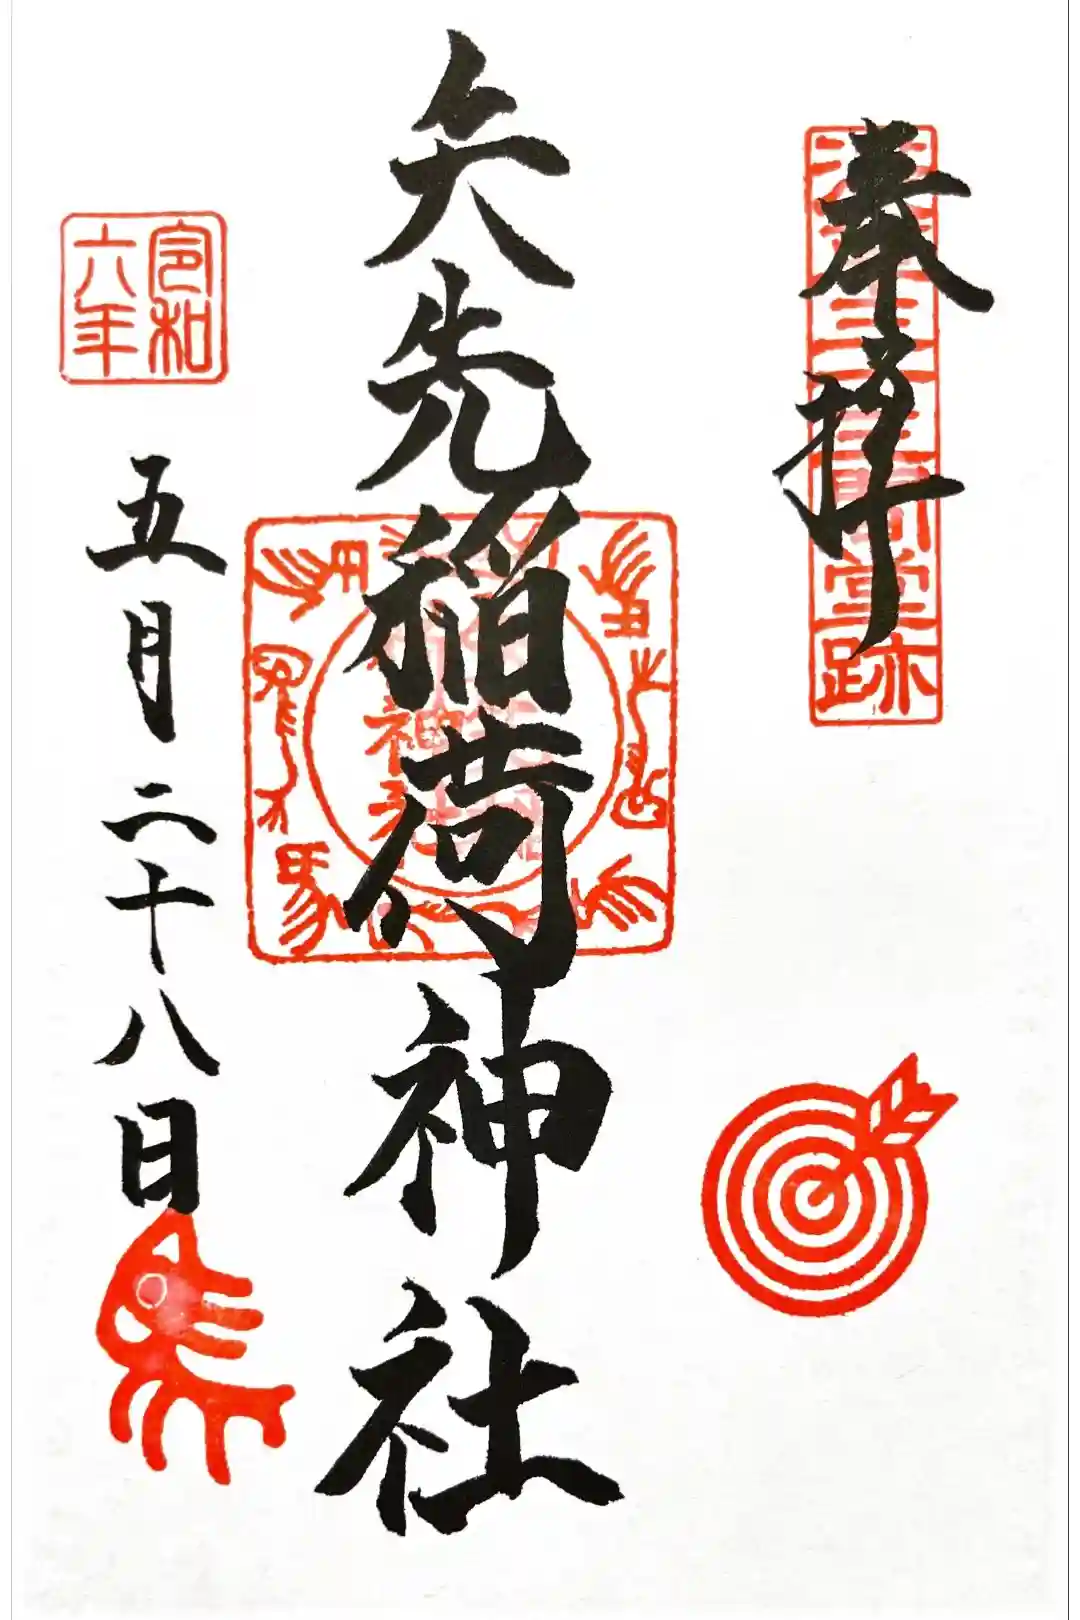 奉拝
浅草三十三間堂跡
矢先稲荷神社
令和
六年
五月二十八日